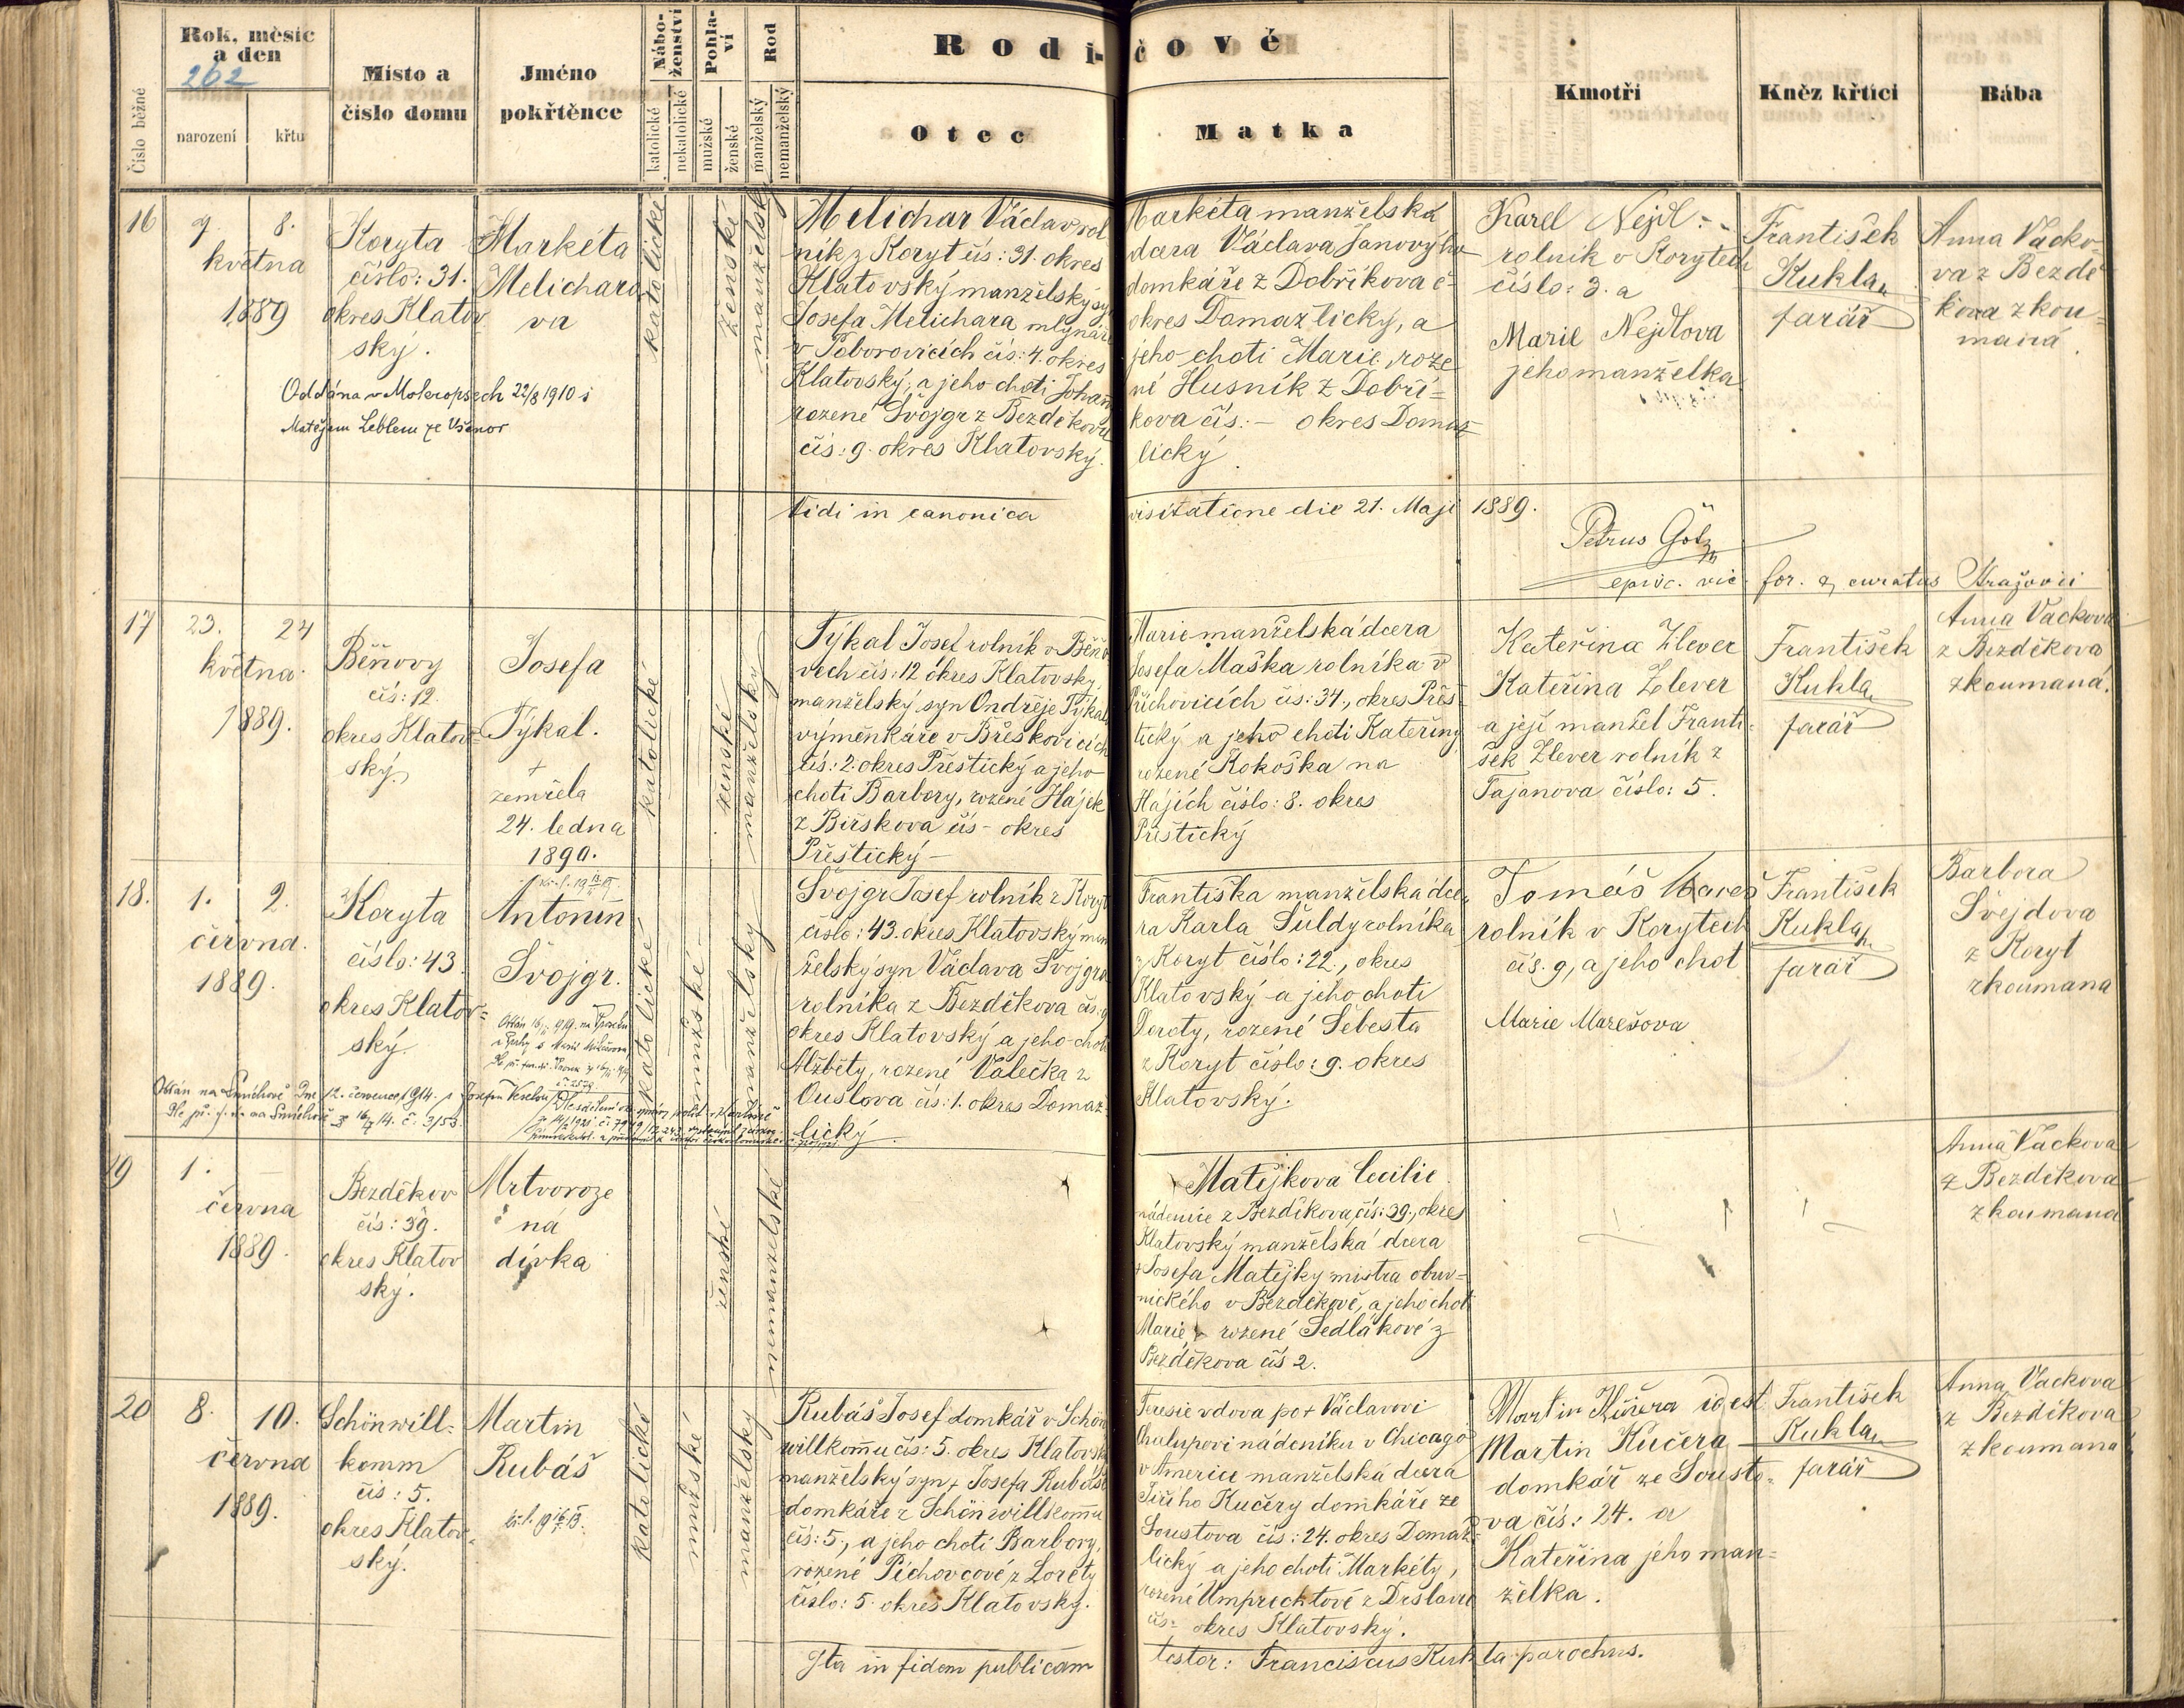 Číslo běžné
Rok, měsíc
a den
262
narození
křtu
Místo a
číslo domu
Jméno
pokřtěnce
Nábo-
ženství
katolické
nekatolické
Pohla-
ví
mužské
ženské
Rod
manželský
nemanželský
Rodi-
čové
Otec
Matka
Kmotři
Kněz křtící
Bába
16
7. 8.
května
1889
Koryta
číslo: 31.
okres Klatov
ský.
Markéta
Melicharo
va
Oddána v Mokropsech 22/8 1910 s
Matějem Leblem ze Všenor
katolické
ženské
manželský
Melichar Václav rol-
ník z Koryt čís: 31. okres
Klatovský manželský syn
Josefa Melichara mlynáře
v Poborovicích čís: 4. okres
Klatovský, a jeho choti Johany
rozené Švojgr z Bezděkova
čís: 9. okres Klatovský.
Markéta manželská
dcera Václava Janovýho
domkáře z Dobříkova č-
okres Domažlický, a
jeho choti Marie, roze
né Husník z Dobří=
kova čís: – okres Domaž
lický.
Karel Nejdl
rolník v Korytech
číslo: 3. a
Marie Nejdlova
jeho manželka
František
Kukla
farář
Anna Vacko
va z Bezdě
kova zkou=
maná.
Vidi in canonica
visitatione die 21. Maji 1889.
Petrus Gölz
episc. vic. for. & curatus Stražovii
17
23. 24
května
1889.
Běňovy
čís: 12.
okres Klatov=
ský.
Josefa
Týkal.
+
zemřela
24. ledna
1890.
katolické
ženské
manželský
Týkal Josef rolník v Běňo
vech čís: 12 okres Klatovský
manželský syn Ondřeje Týkala
výměnkáře v Břeskovicích
čís: 2. okres Přeštický a jeho
choti Barbory, rozené Hájek
z Birškova čís – okres
Přeštický –
Marie manželská dcera
Josefa Maška rolníka v
Příchovicích čís: 34., okres Přeš-
tický a jeho choti Kateřiny
rozené Kokoška na
Hájích číslo: 8. okres
Přeštický
Kateřina Zlever
Kateřina Zlever
a její manžel Franti-
šek Zlever rolník z
Tajanova číslo: 5.
František
Kukla
farář
Anna Vackova
z Bezděkova
zkoumaná.
18.
1. 2.
června.
1889.
Koryta
číslo: 43
okres Klatov=
ský.
Antonín
Švojgr.
Oddán na Smíchově dne 12. července 1914. s Josefou
katolické
mužské
manželský
Švojgr Josef rolník z Koryt
číslo: 43. okres Klatovský man
želský syn Václava Švojgra
rolníka z Bezděkova čís. 9
okres Klatovský a jeho choti
Alžběty, rozené Valečka z
Ouslova čís: 1. okres Domaž-
lický.
Františka manželská dce
ra Karla Šuldy rolníka
z Koryt číslo: 22., okres
Klatovský a jeho choti
Doroty, rozené Šebesta
z Koryt číslo: 9. okres
Klatovský.
Tomáš Mareš
rolník v Korytech
čís. 9, a jeho choť
Marie Marešova
František
Kukla
farář
Barbora
Švejdova
z Koryt
zkoumana
19
1.
června
1889.
Bezděkov
čís: 39.
okres Klatov
ský.
Mrtvoroze
ná
dívka
ženské
nemanželské
Matějkova Cecilie
nádenice z Bezděkova, čís: 39., okres
Klatovský manželská dcera
+ Josefa Matějky mistra obuv=
nického v Bezděkově, a jeho choti
Marie, rozené Sedlákové z
Bezděkova čís 2.
Anna Vackova
z Bezděkova
zkoumaná
20
8. 10.
června
1889.
Schönwill-
komm
čís: 5.
okres Klatov-
ský.
Martin
Rubáš
katolické
mužské
manželský
Rubáš Josef domkář v Schön
willkom̅u čís: 5. okres Klatovský
manželský syn + Josefa Rubáše
domkáře z Schönwillkom̅u
čís: 5., a jeho choti Barbory,
rozené Píchovcové z Lorety
číslo: 5. okres Klatovský.
Teresie vdova po + Václavovi
Chalupovi nádeníku v Chicago
v Americe manželská dcera
Jiřího Kučery domkáře ze
Soustova čís: 24. okres Domaž-
lický a jeho choti Markéty,
rozené Umprechtové z Dršlavic
čís – okres Klatovský.
Martin Kučera id est
Martin Kučera
domkář ze Sousto-
va čís: 24. a
Kateřina jeho man=
želka.
František
Kukla
farář
Anna Vackova
z Bezděkova
zkoumaná
Ita in fidem publicam
testor: Franciscus Kukla parochus.